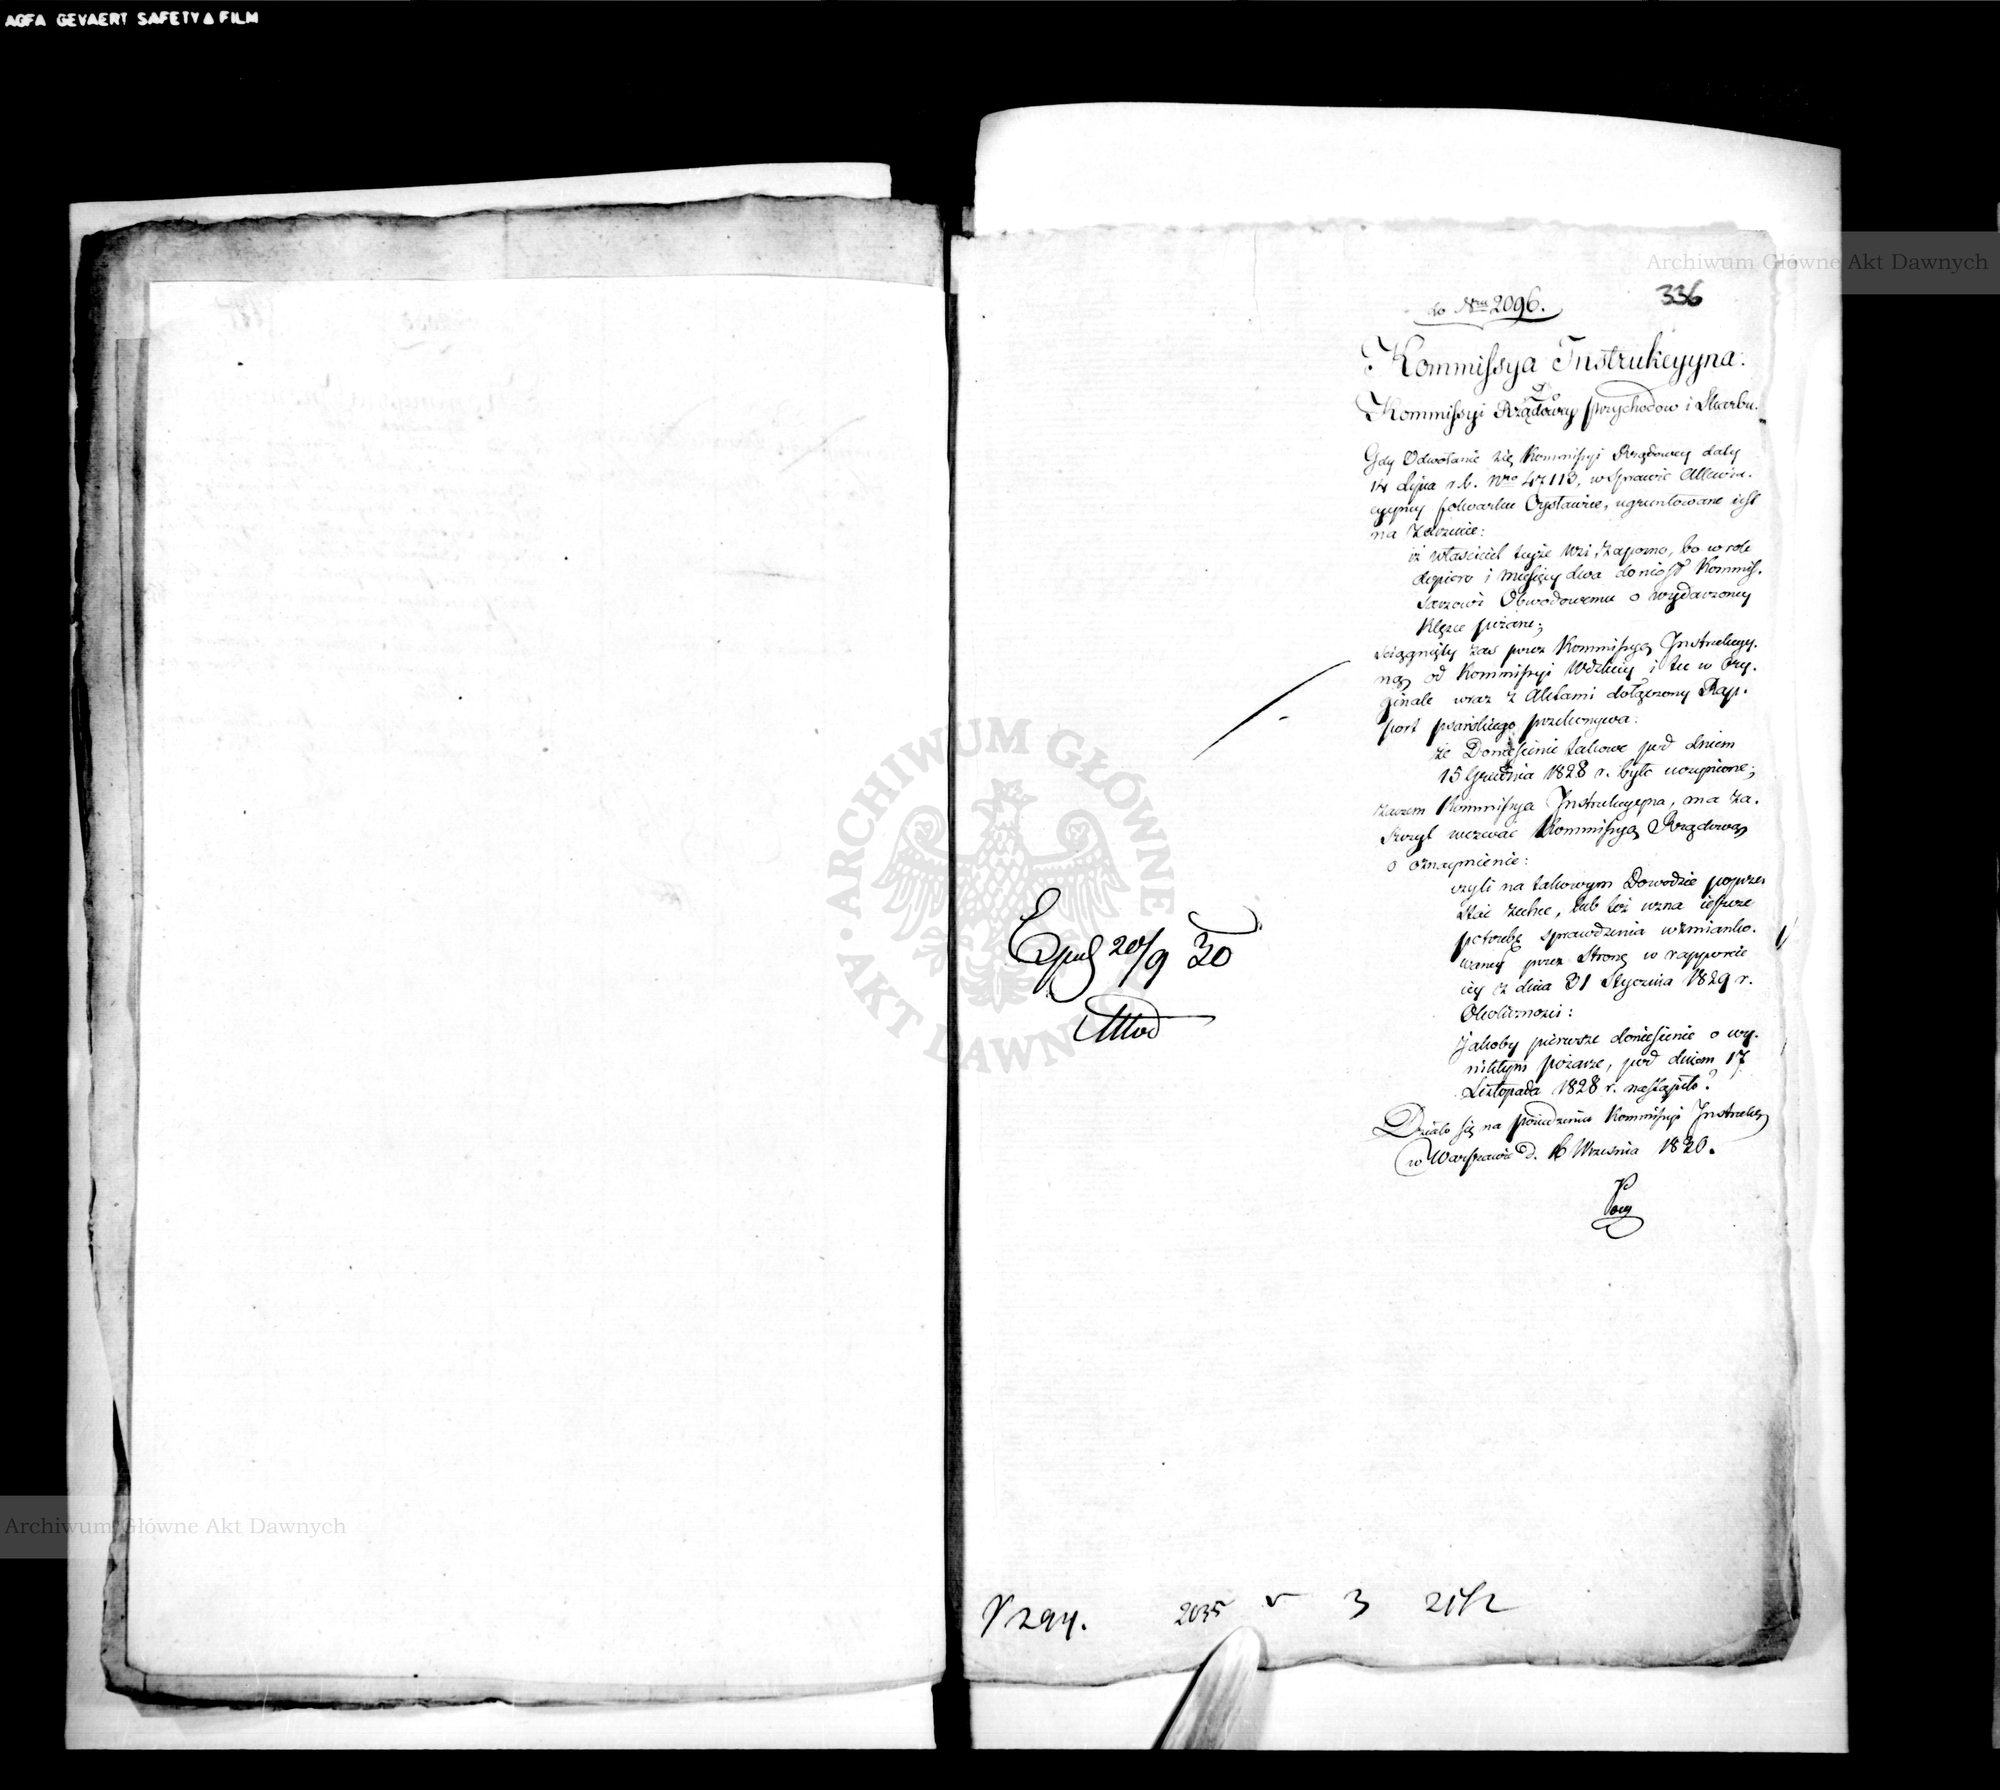 AGFA GEVAERT SAFETY FILM
Archiwum Główne Akt Dawnych
336
do Nru 2096.
Kommissya Instrukcyyna.
Kommissyi Rządowey Przychodow i Skarbu.
Gdy Odwołanie się Kommissyi Rządowey daty
14 Lipca r. b. Nro 47113, w Sprawie Allewia-
cyyney folwarku Czysławice, ugruntowane iest
na Zarzucie:
iż właściciel teyże Wsi, zapozno, bo w rok
dopiero i miesięcy dwa doniosł Kommis-
sarzowi Obwodowemu o wydarzoney
klęsce pożaru;
sciągnięty zas przez Kommissyą Instrukcyy-
ną od Kommissyi Wdzkiey i tu w Ory-
ginale wraz z Aktami dołączony Rap-
port przekonywa:
że Doniesienie takowe pod dniem
15 Grudnia 1828 r. było uczynione;
zaczem Kommissya Instrukcyyna, ma za-
szczyt wezwać Kommissyą Rządową
o oznaymienie:
czyli na takowym Dowodzie poprze-
stać zechce, lub też uzna ieszcze
potrzebę sprawdzenia wzmianko-
waney przez Stronę w rapporcie
iey z dnia 31 Stycznia 1829 r.
Okoliczności:
jakoby pierwsze doniesienie o wy-
nikłym pożarze, pod dniem 17
Listopada 1828 r. nastąpiło?
Działo się na posiedzeniu Kommissyi Instrukcy
w Warszawie d. 16 Września 1830.
Exped 20/9 30
ARCHIWUM GŁÓWNE
AKT DAWNYCH
2035 v 3
Archiwum Główne Akt Dawnych